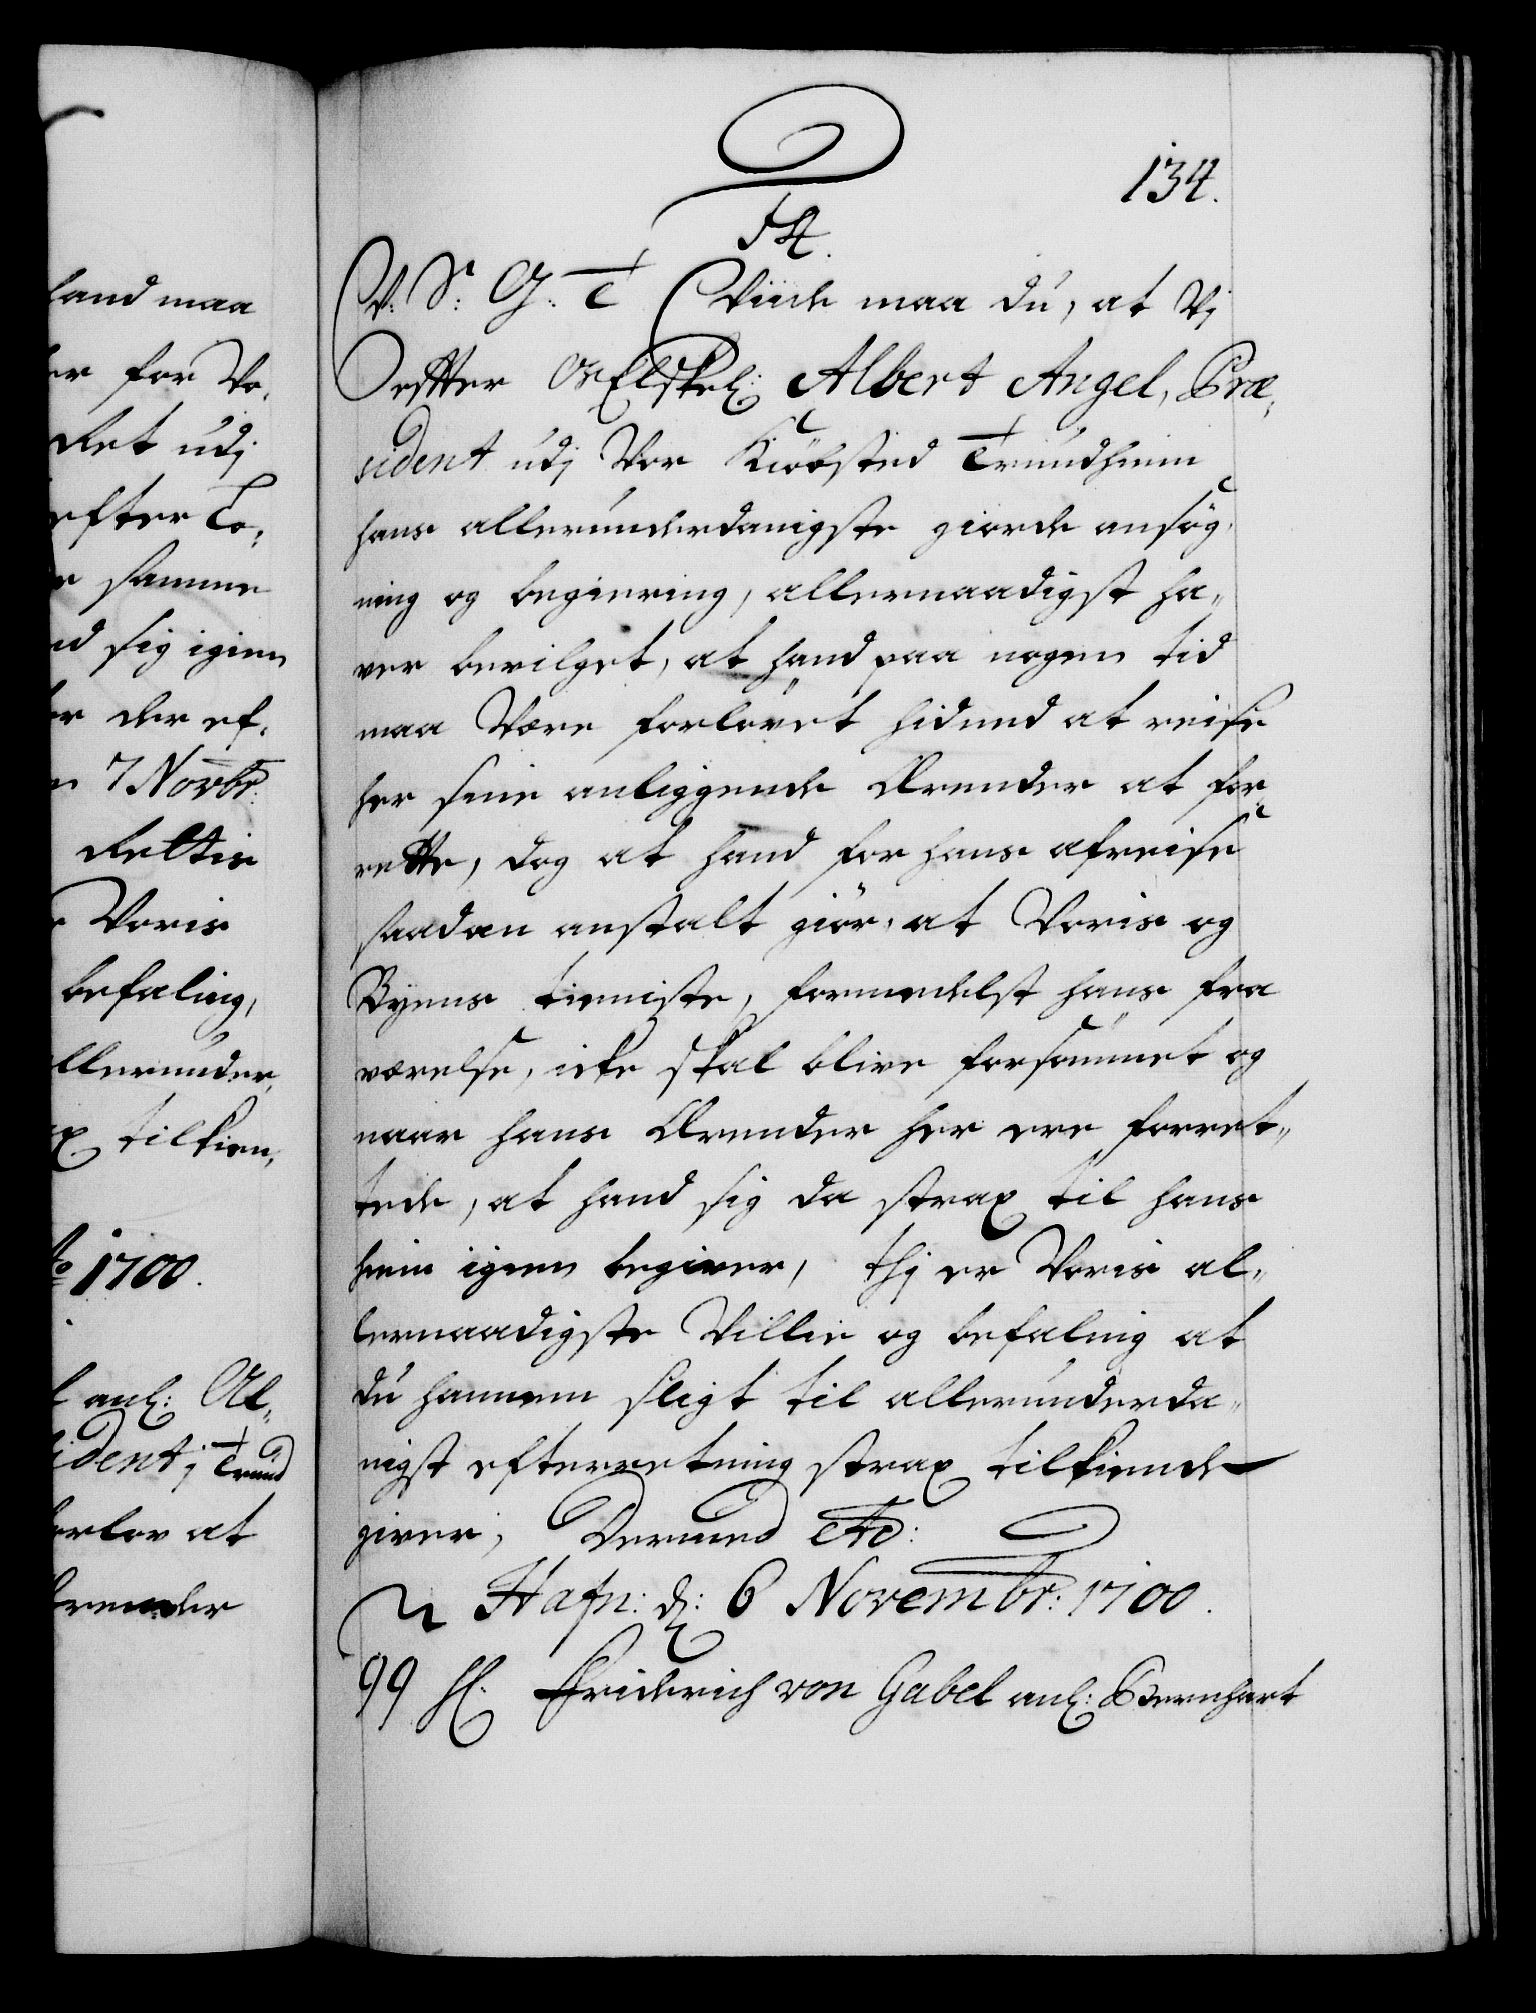 134.
54.
V: Sr: G: T Viide maa du, at Vj
effter Os Elskel: Albert Angel, Præ,
sident udj Vor Kiöbsted Trundhiem
hans allerunderdanigste giorde ansög,
ning og begiering, allernaadigst ha,,
ver bevilget, at hand paa nogen tid
maa Være forlovet hidned at reise
her sine anliggende Ærender at for,
rette, dog at hand for hans afreise
saadan anstalt giör, at Voris og
Byens tieniste, formedelst hans fra
værelse, icke skal blive forsömmet og
naar hans Ærender her ere forret,,
tede, at hand sig da strax til hans
hiem igien begiver, thj er Voris al,,
lernaadigste Villie og befaling at
du hannem sligt til allerunderda,,
nigst efterretning strax tilkiende
giver, Dermed etc:
Hafn: d: 6 Novembr: 1700.
99 H. Friderich von Gabel anl: Bernhart
hand maa
er for Vo,
det udj
efter Co,
samme
nd sig igien
der ef,
7 Novbr:
deltis
Voris
befaling,
llerunder,
x tilkien,
Ao 1700.
anl: Al,,
sident j Trund
orlov at
Ærender